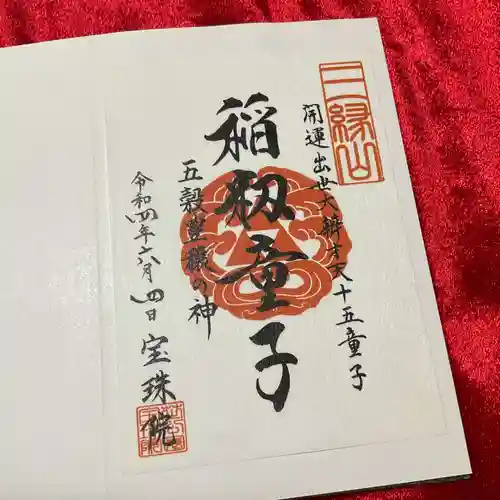 三縁山
開運出世大辨才天十五童子
稲籾童子
五穀豊穣の神
令和四年六月四日
宝珠院